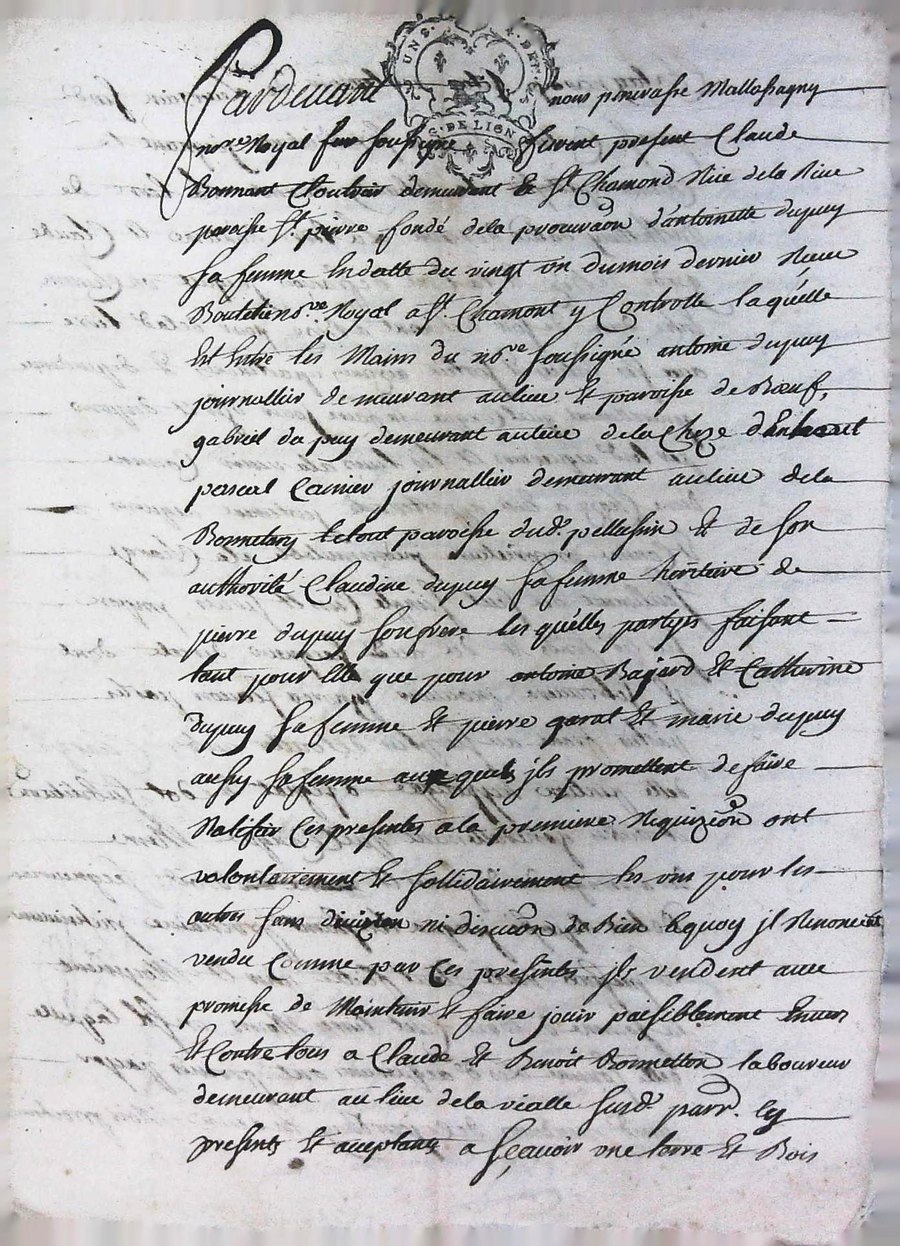 UN S. 4. DE
G. DE LION
Pardevant nous pierre
nore Royal fur soussigné furent present Claude
Bonnant demeurant a St. Chamond Rue de la Rive
paroisse St. pierre fondé de la procuraôn d'antoinette dupuy
sa femme en datte du vingt un du mois dernier Receu
nore Royal a St. Chamont y Controllé laquelle
Est Entre les Mains du nore soussigné antoine dupuy
journallier demeurant au lieu Et paroisse de Bœuf,
gabriel du puy demeurant au lieu de la Cheze
pascal journallier demeurant au lieu dela
le tout paroisse dud. pellussin Et de son
authorité Claudine dupuy sa femme heritiere de
pierre dupuy son frere lesquelles partyes faisant
tant pour Elle que pour antoine Bajard Et Catherine
dupuy sa femme Et pierre garat Et marie dupuy
aussy sa femme auxquels jls promettent de faire
Ratiffier Ces presentes a la premiere Requiziôn ont
volontairement Et sollidairement les uns pour les
autres sans divizion ni discuôn de Bien aquoy jl Renoncent
vendu Comme par Ces presentes jls vendent avec
promesse de Maintenir Et faire jouir paisiblement Envers
Et Contre tous a Claude Et Benoit Bonnetton laboureur
demeurant au lieu de la vialle susd. parr. Cy
presents Et acceptants a sçavoir une terre Et Bois